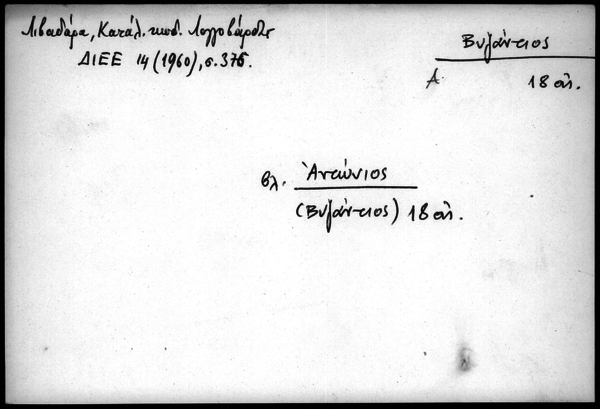 Λιβαδάρα, Κατάλ. κωδ. Λογγοβάρδας
ΔΙΕΕ 14 (1960), σ. 375.
Βυζάντιος
Α 18 αἰ.
βλ. Ἀντώνιος
(Βυζάντιος) 18 αἰ.